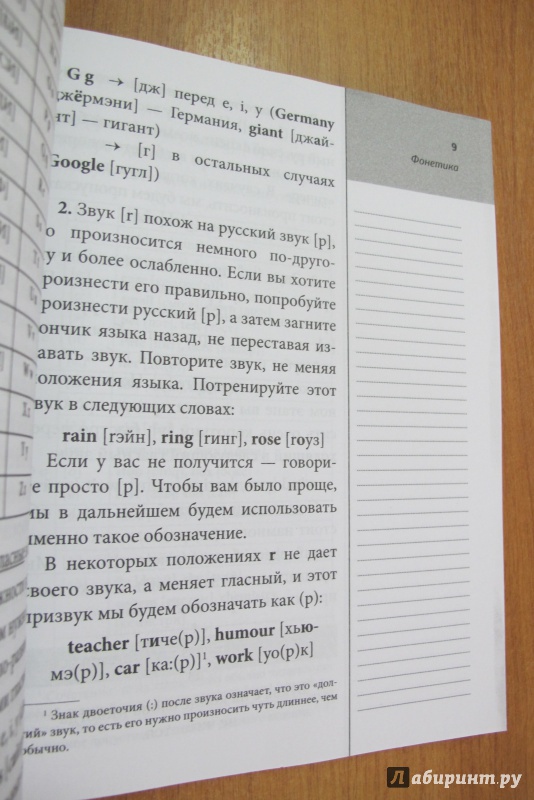 G g → [дж] перед e, i, y (Germany
джёрмэни] — Германия, giant [джай-
нт] — гигант)
→ [г] в остальных случаях
Google [гугл])
9
Фонетика
2. Звук [r] похож на русский звук [р],
о произносится немного по-друго-
у и более ослабленно. Если вы хотите
роизнести его правильно, попробуйте
роизнести русский [р], а затем загните
ончик языка назад, не переставая из-
авать звук. Повторите звук, не меняя
оложения языка. Потренируйте этот
вук в следующих словах:
rain [rэйн], ring [rинг], rose [rоуз]
Если у вас не получится — говори-
е просто [р]. Чтобы вам было проще,
мы в дальнейшем будем использовать
именно такое обозначение.
В некоторых положениях r не дает
своего звука, а меняет гласный, и этот
призвук мы будем обозначать как (р):
teacher [тиче(р)], humour [хью-
мэ(р)], car [ка:(р)]¹, work [уо(р)к]
¹ Знак двоеточия (:) после звука означает, что это «дол-
гий» звук, то есть его нужно произносить чуть длиннее, чем
обычно.
Лабиринт.ру